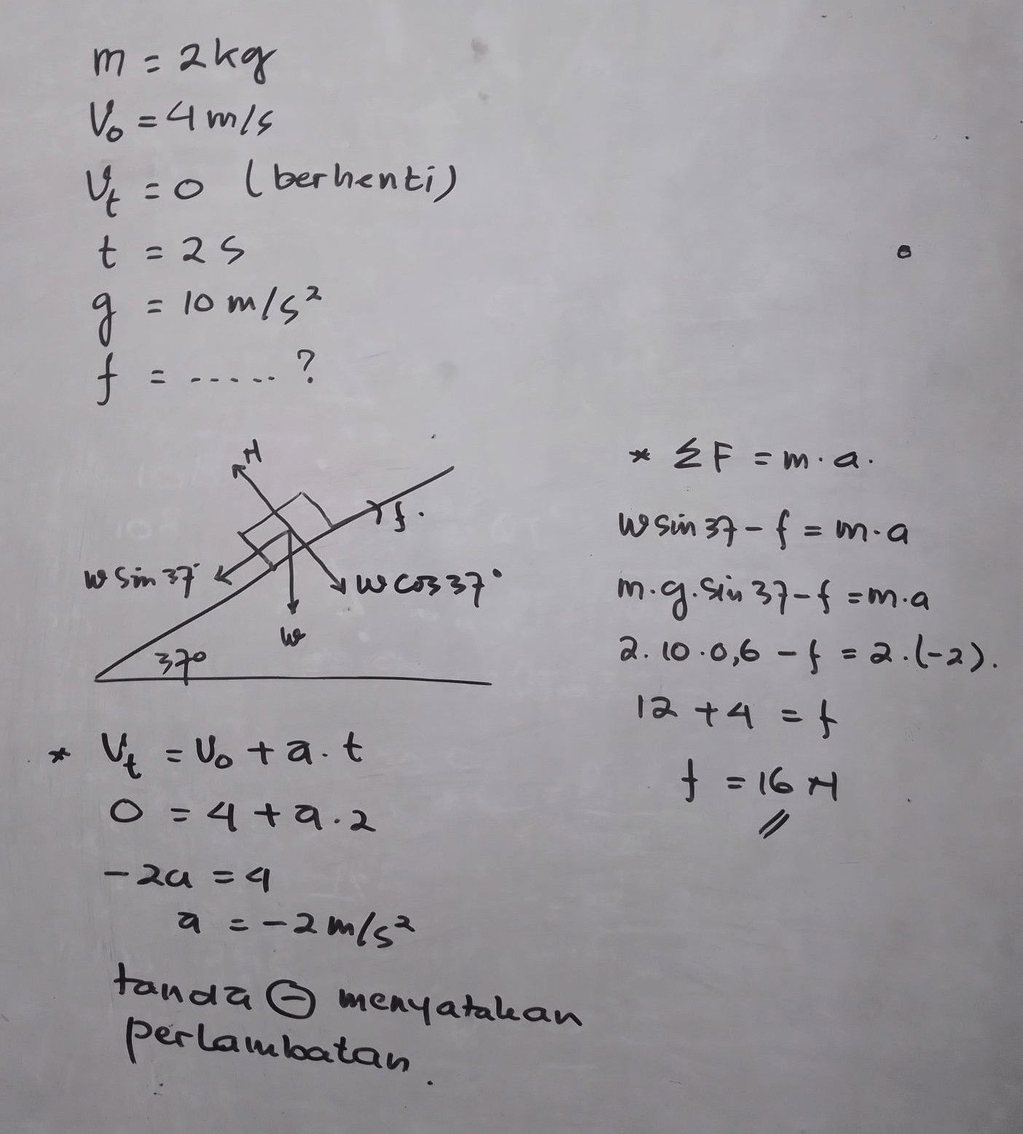 m = 2kg
V₀ = 4 m/s
Vₜ = 0 (berhenti)
t = 2 s
g = 10 m/s²
f = ..... ?
N
f.
w sin 37°
w cos 37°
w
37°
* Vₜ = V₀ + a . t
0 = 4 + a . 2
-2a = 4
a = -2 m/s²
tanda ⊖ menyatakan
perlambatan.
* ΣF = m . a.
w sin 37 - f = m . a
m . g . sin 37 - f = m . a
2 . 10 . 0,6 - f = 2 . (-2).
12 + 4 = f
f = 16 N